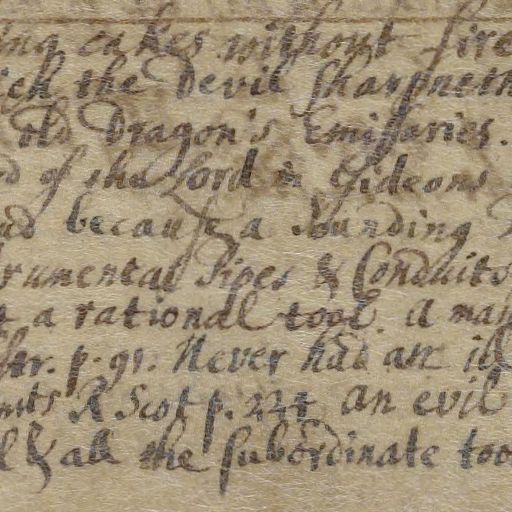 ing cakes without fire
ich the Devil sharpneth
old Dragon's Emissaries.
d of the Lord & Gideons
and because a sounding
rumental Pipes & Conduits
t a rational tool. A man
str. p. 91. Never had an ill
nts R Scot p. 224 An evil
l & all the subordinate too